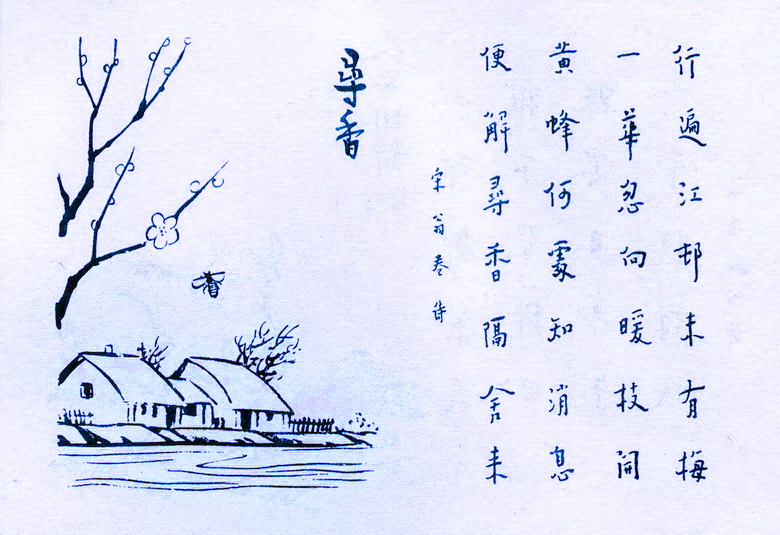 行遍江邨未有梅
一華忽向暖枝開
黄蜂何處知消息
便解尋香隔舍来
宋翁卷詩
尋香